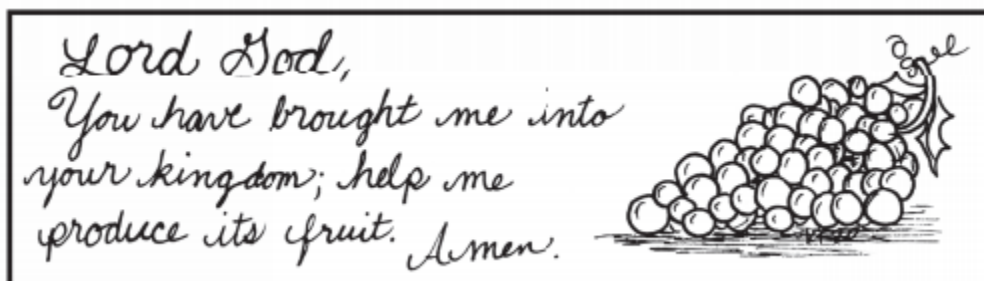 Lord God,
You have brought me into
your kingdom; help me
produce its fruit.
Amen.